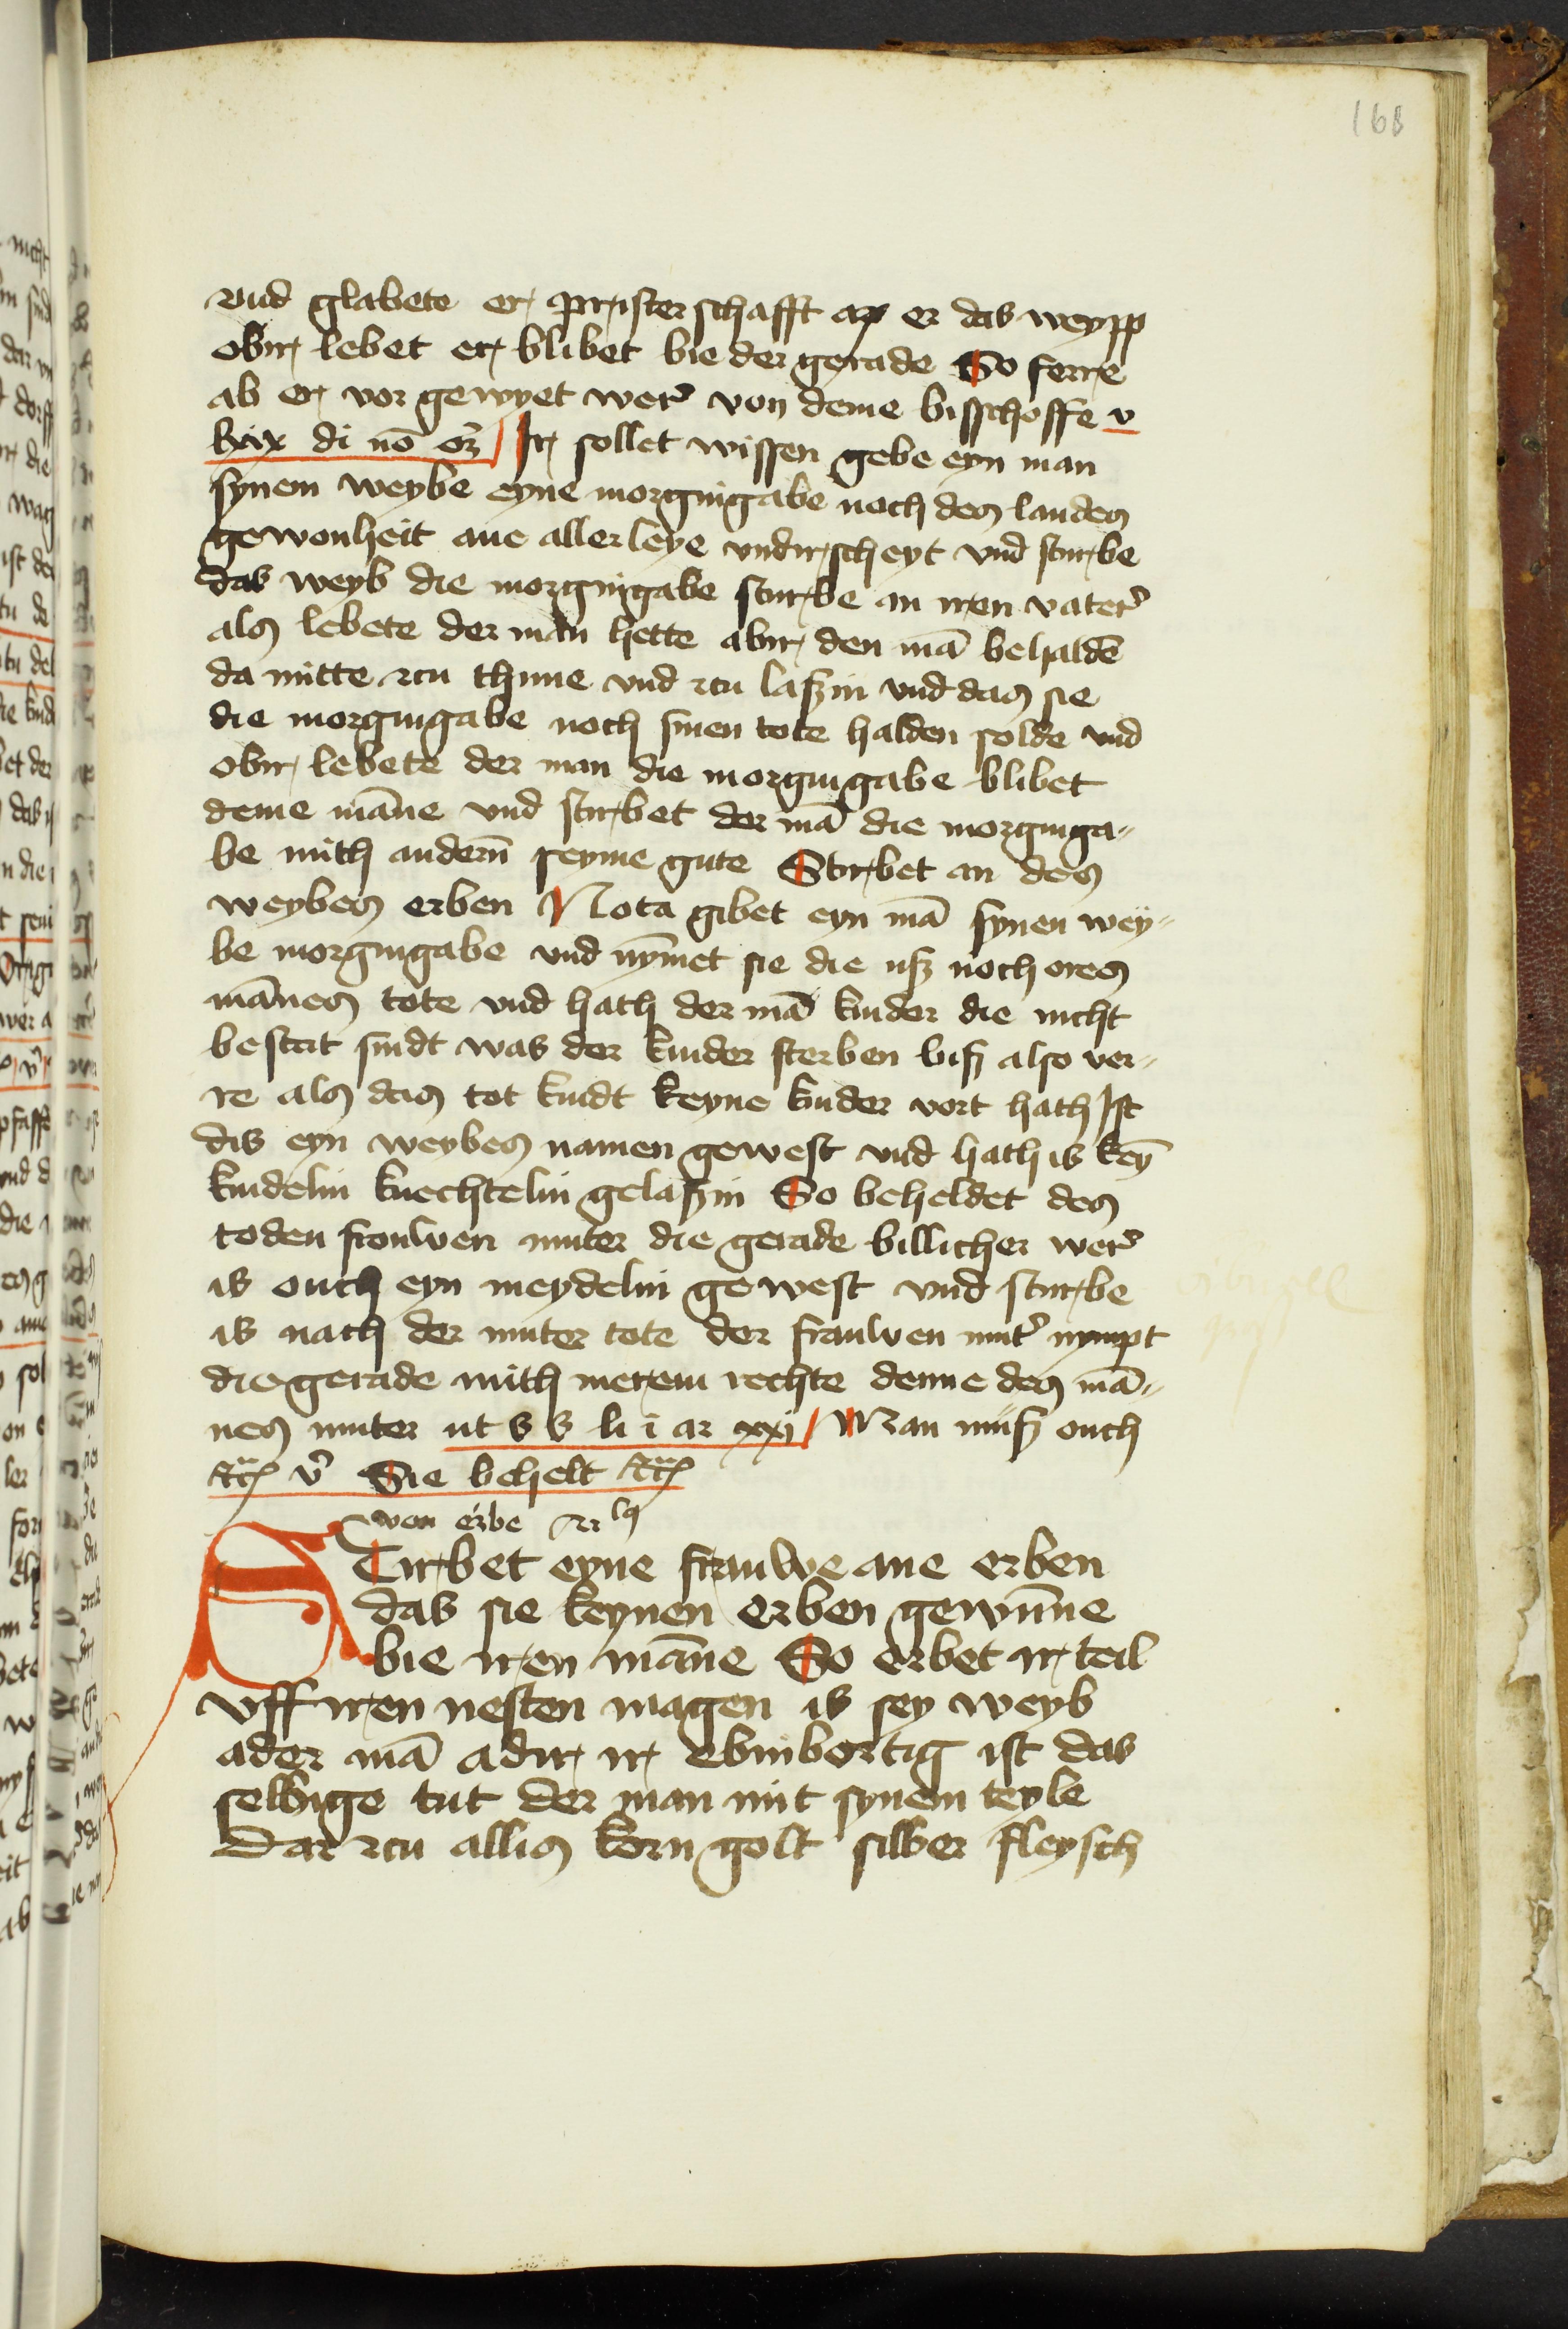 168
vnd glabete er pristerschafft ap er das weypp
obir lebet er blibet bie der gerade So ferre
ab er vor gewyet wer̛ von deme bisschoffe v
lxix di nō oꝫ Ir sollet wissen gebe eyn man
synem weybe eyne morgingabe noch des landes
gewonheit ane allerleye vndirscheyt vnd sturbe
das weyb die morgingabe sturbe an iren vater̛
als lebete der man hette abir den mā behaldē
da mitte zcu thune vnd zcu laszin vnd das sie
die morgingabe noch sinen tote halden solde vnd
obir lebete der man die morgingabe blibet
deme māne vnd stirbet der mā die morginga-
be mith anderm̄ seyme gute Stirbet an des
weybes erben Nota gibet eyn mā synen wey-
be morgingabe vnd nȳmet sie die usz noch ores
mānes tote vnd hath der mā kinder die nicht
bestat sindt was der kinder sterben bisz also ver-
re als das tot kindt keyne kinder vort hath Ist
dis eyn weybes namen gewest vnd hath is keȳ
kindelin knechtelin gelaszin So beheldet des
toden frouwen muter die gerade billicher wer̛
is ouch eyn meydelin gewest vnd sturbe
is nach der muter tote der frauwen mut̛ nympt
die gerade mith merem rechte denne des mā-
nes muter ut s s li i ar xxi Man müsz ouch
etc̈ v̛ Sie behelt etc̈
von erbe
Stirbet eyne frauwe ane erben
das sie keynen erben gewūne
bie iren māne So erbet ir teil
vff iren nesten magen is sey weyb
ader mā adir ir ebinbortig ist das
selbige tut der man mit synem teyle
Dar zcu allis korn golt silber fleysch